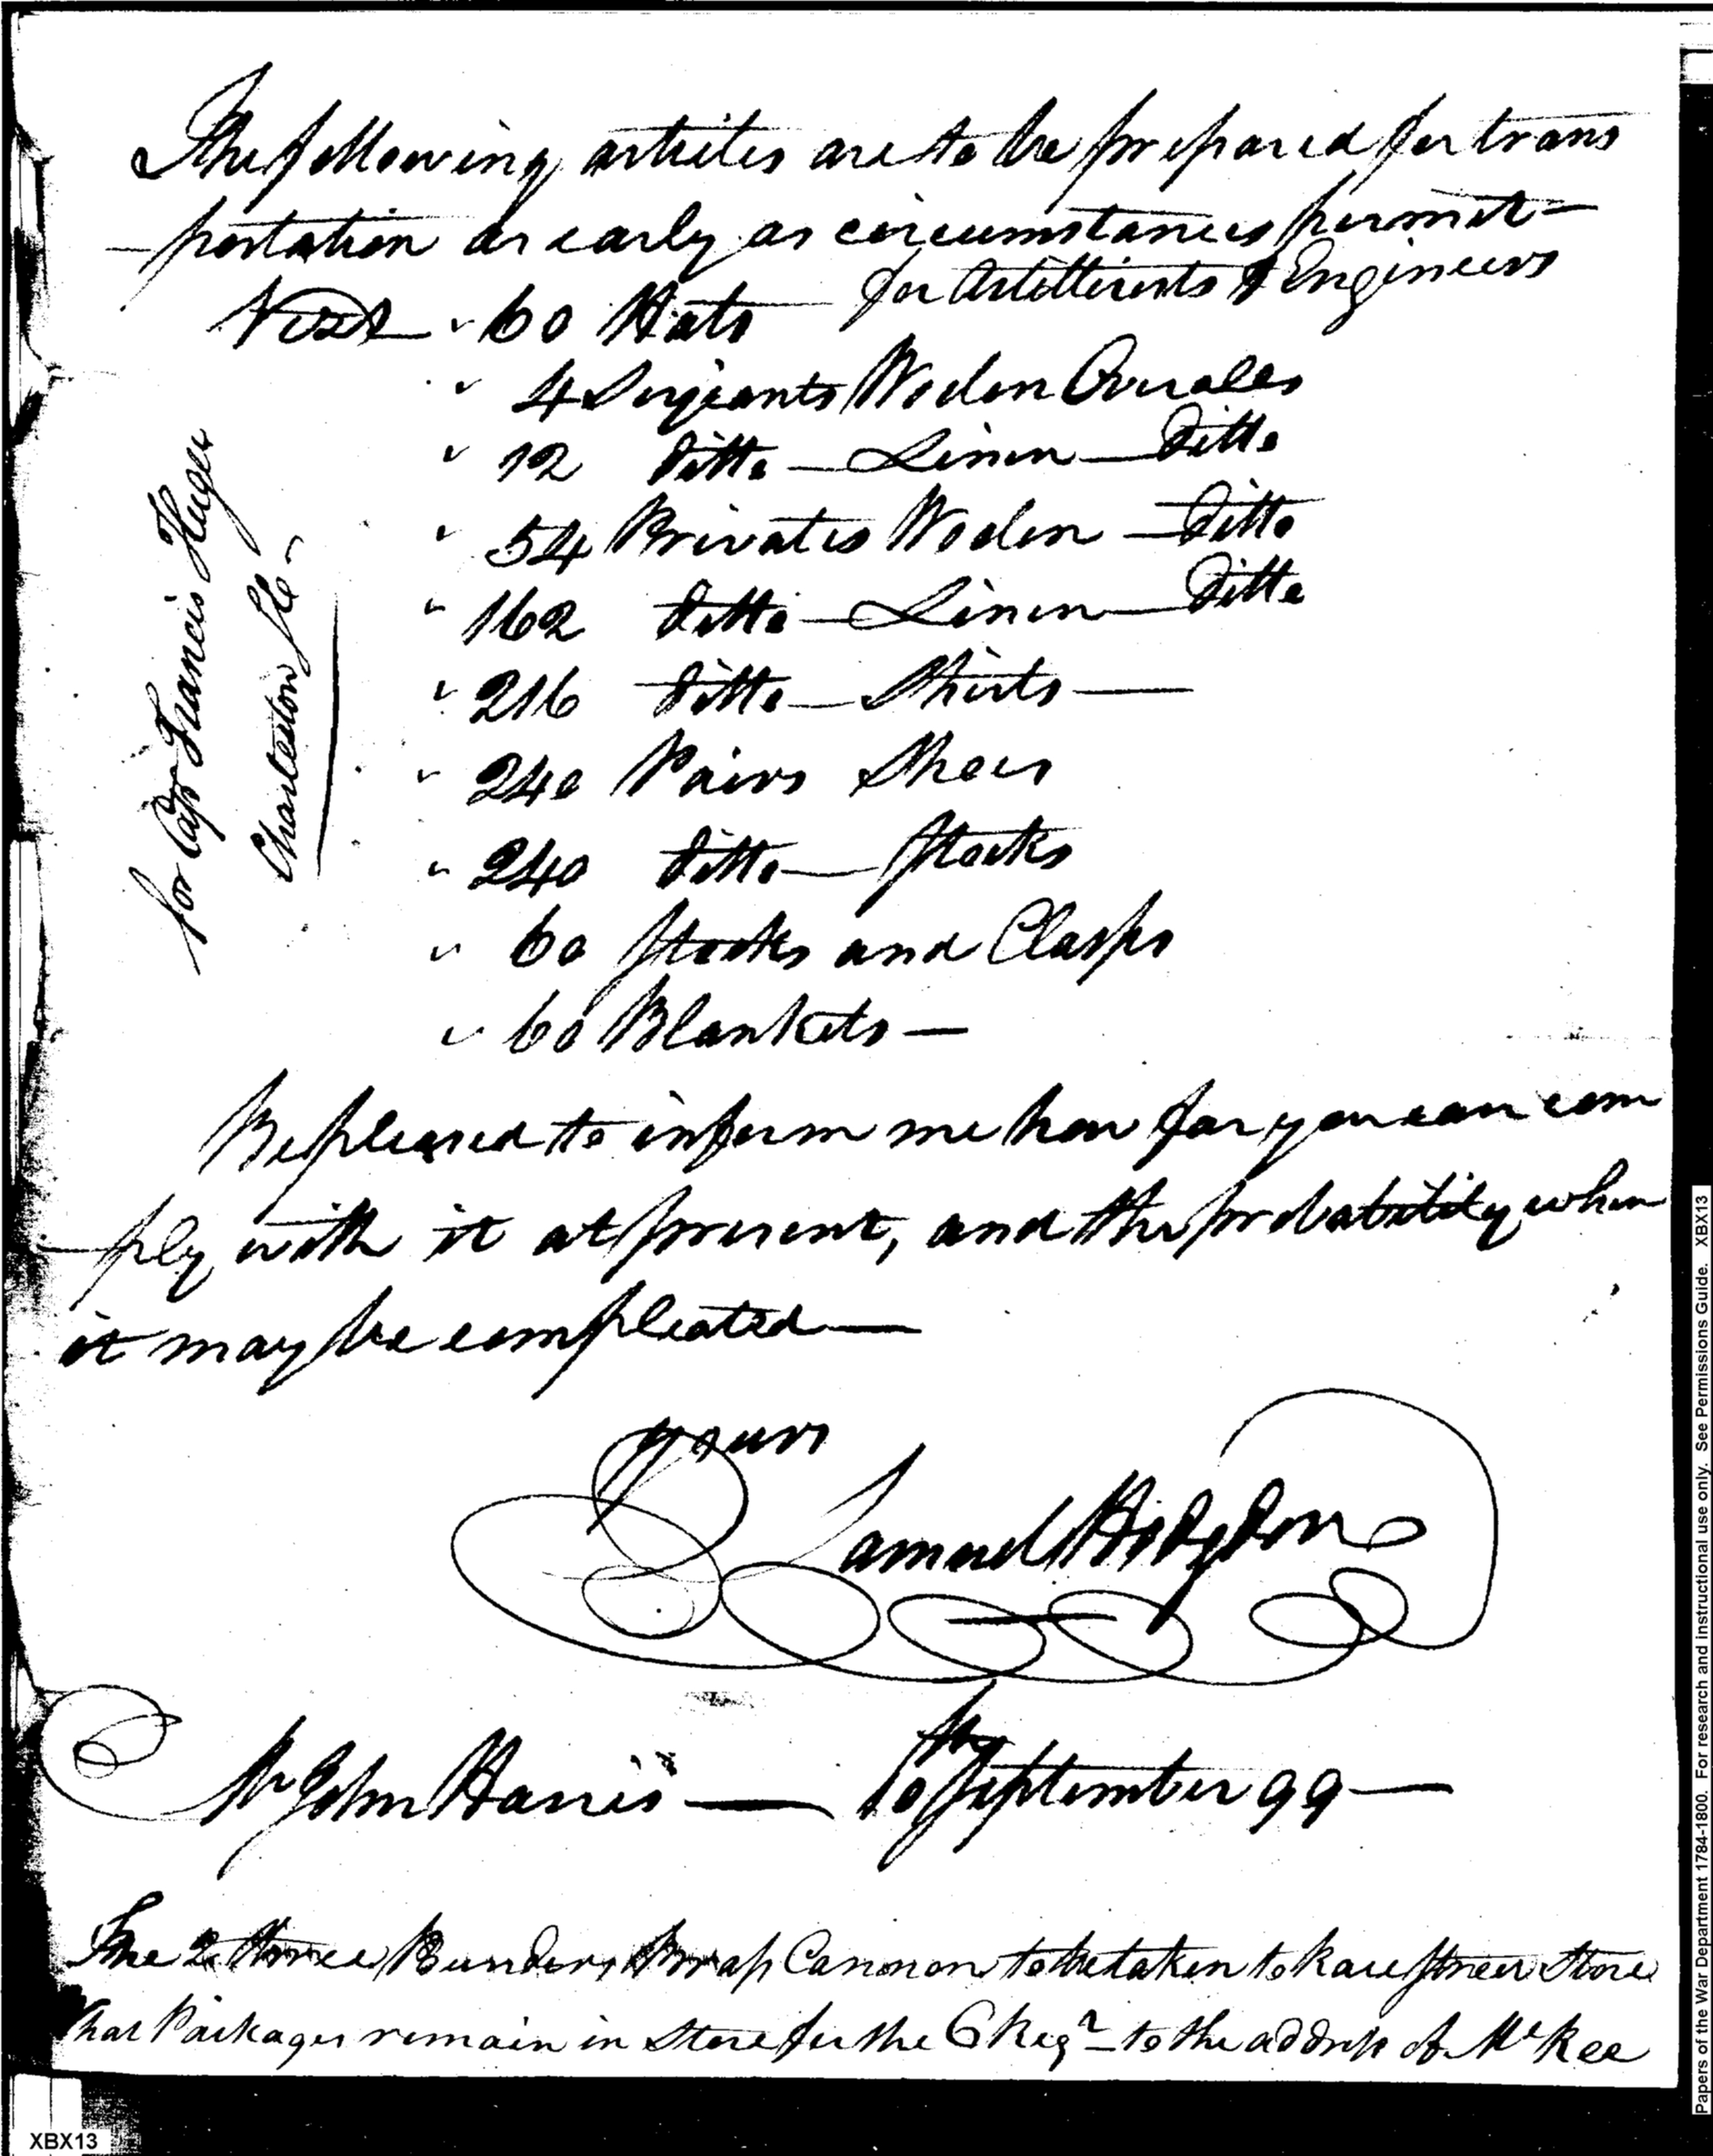 The following articles are to be prepared for trans
-portation as early as circumstances permit-
Vizt 60 Hats for Artillerists & Engineers
4 Sergeants Woolen Overalls
12 ditto - Linen - ditto
54 Privates Woolen - ditto
162 ditto - Linen - ditto
216 ditto - Shirts -
240 Pairs Shoes
240 ditto - Socks
60 Stocks and Clasps
60 Blankets -
for Capt Francis Huger
Charleston
Be pleased to inform me how far you can com
-ply with it at present, and the probability when
it may be compleated -
yours
Samuel Hodgdon
Mr John Harris - 10 September 99 -
The Three Cannon to be taken to Race Street Store
What Packages remain in Store for the 6 Regt - to the address of McKee
Papers of the War Department 1784-1800. For research and instructional use only. See Permissions Guide. XBX13
XBX13